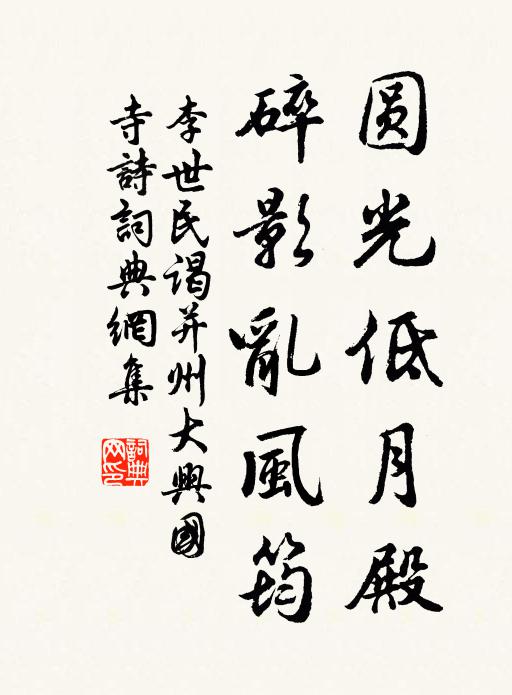 圆光低月殿
碎影亂風筠
李世民谒并州大興國
寺詩詞典網集
詞典网印